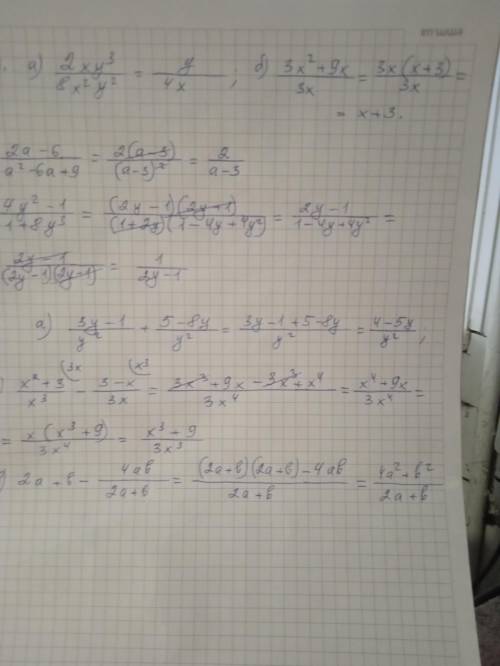 а) 2xy³/8x²y² = y/4x ; б) 3x²+9x/3x = 3x(x+3)/3x =
= x+3.
2a-6/a²-6a+9 = 2(a-3)/(a-3)² = 2/a-3
4y²-1/1+8y³ = (2y-1)(2y+1)/(1+2y)(1-4y+4y²) = 2y-1/1-4y+4y² =
2y-1/(2y-1)(2y-1) = 1/2y-1
а) 3y-1/y² + 5-8y/y² = 3y-1+5-8y/y² = 4-5y/y² ;
) x²+3/x³ (3x - 3-x/3x (x³ = 3x³+9x-3x³+x⁴/3x⁴ = x⁴+9x/3x⁴ =
= x(x³+9)/3x⁴ = x³+9/3x³
) 2a+b - 4ab/2a+b = (2a+b)(2a+b)-4ab/2a+b = 4a²+b²/2a+b